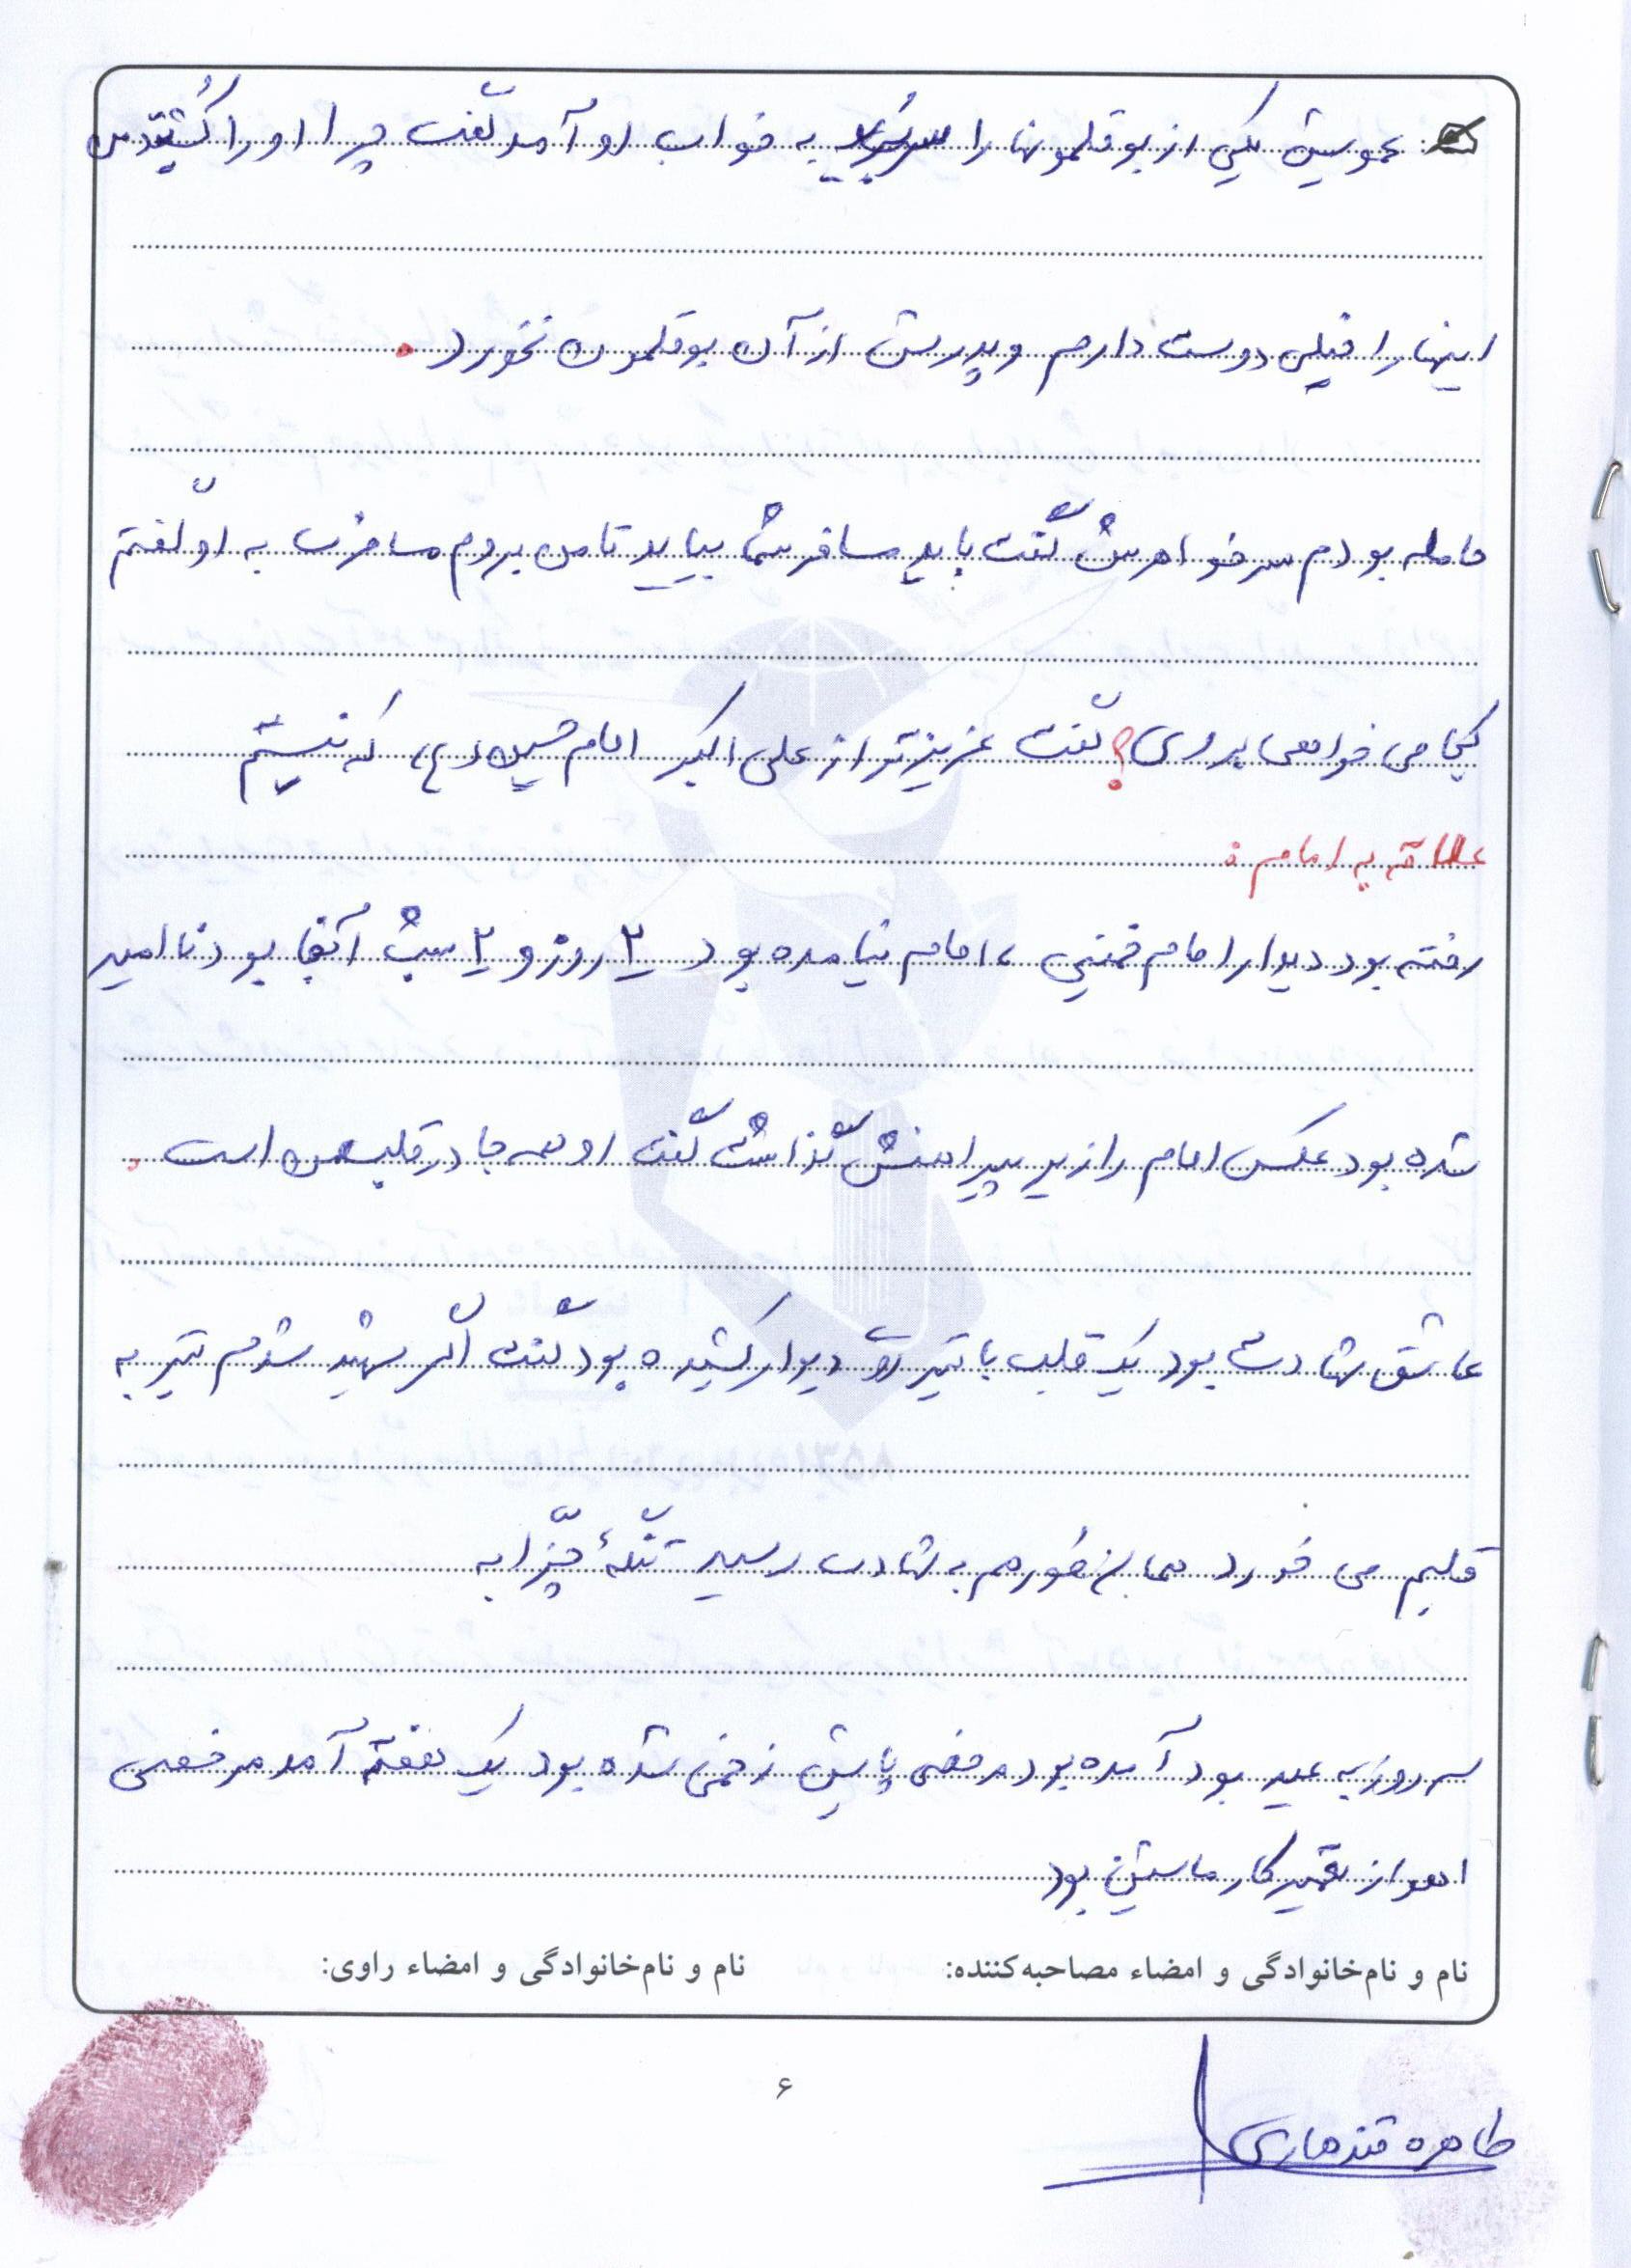 : عمویش یکی از بوقلمونها را سر برید به خواب او آمد گفت چرا او را کُشتید من
اینها را خیلی دوست دارم و پدرش از آن بوقلمون نخورد .
حامله بودم سر خواهرش گفت باید مسافر شما بیاید تا من بروم مسافرت به او گفتم
کجا می خواهی بروی؟ گفت عزیزتر از علی اکبر امام حسین (ع) که نیستم
علاقه به امام :
رفته بود دیدار امام خمینی ، امام نیامده بود ۲ روز و ۲ شب آنجا بود نا امید
شده بود عکس امام را زیر پیراهنش گذاشت گفت او همه جا در قلب من است .
عاشق شهادت بود یک قلب با تیر روی دیوار کشیده بود گفت اگر شهید شدم تیر به
قلبم می خورد همان طور هم به شهادت رسید تنگهٔ چزّابه
سه روز به عید بود آمده بود مرخصی پایش زخمی شده بود یک هفته آمد مرخصی
اهواز تعمیرکار ماشین بود
نام و نام‌خانوادگی و امضاء مصاحبه‌کننده:
نام و نام‌خانوادگی و امضاء راوی:
۶
طاهره قندهاری